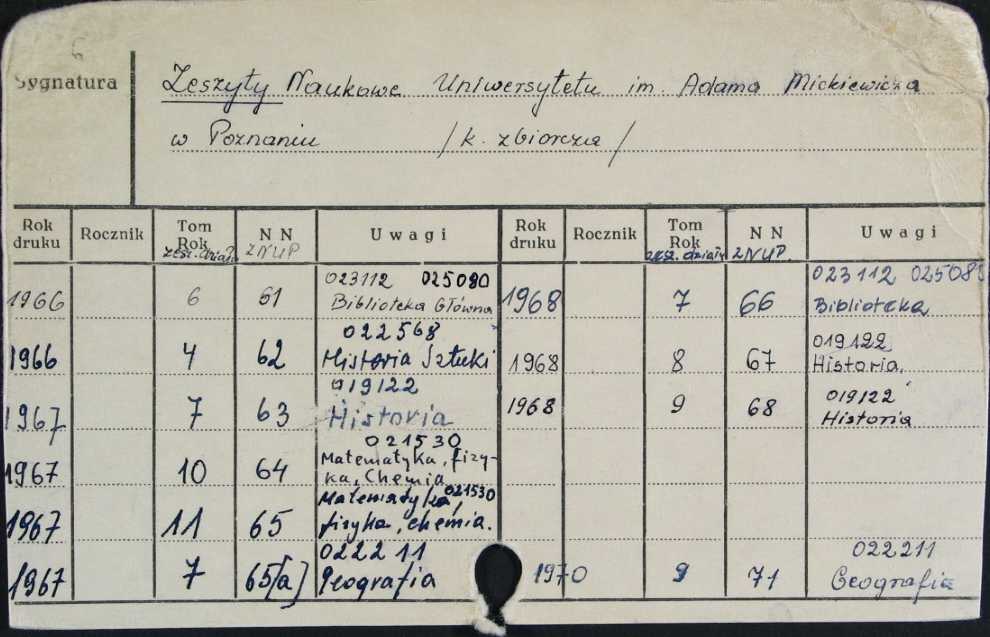 6
Sygnatura
Zeszyty Naukowe Uniwersytetu im. Adama Mickiewicza
w Poznaniu /k. zbiorcza/
Rok druku Rocznik Tom Rok zesz. dział NN ZNUP Uwagi
1966 6 61 023112 025080 Biblioteka Główna
1966 4 62 022568 Historia Sztuki
1967 7 63 019122 Historia
1967 10 64 021530 Matematyka, fizyka, Chemia
1967 11 65 Matematyka, 021530 fizyka, chemia.
1967 7 65[a] 022211 Geografia
Rok druku Rocznik Tom Rok zesz. dział NN ZNUP. Uwagi
1968 7 66 023112 025080 Biblioteka
1968 8 67 019122 Historia.
1968 9 68 019122 Historia
1970 9 71 022211 Geografia